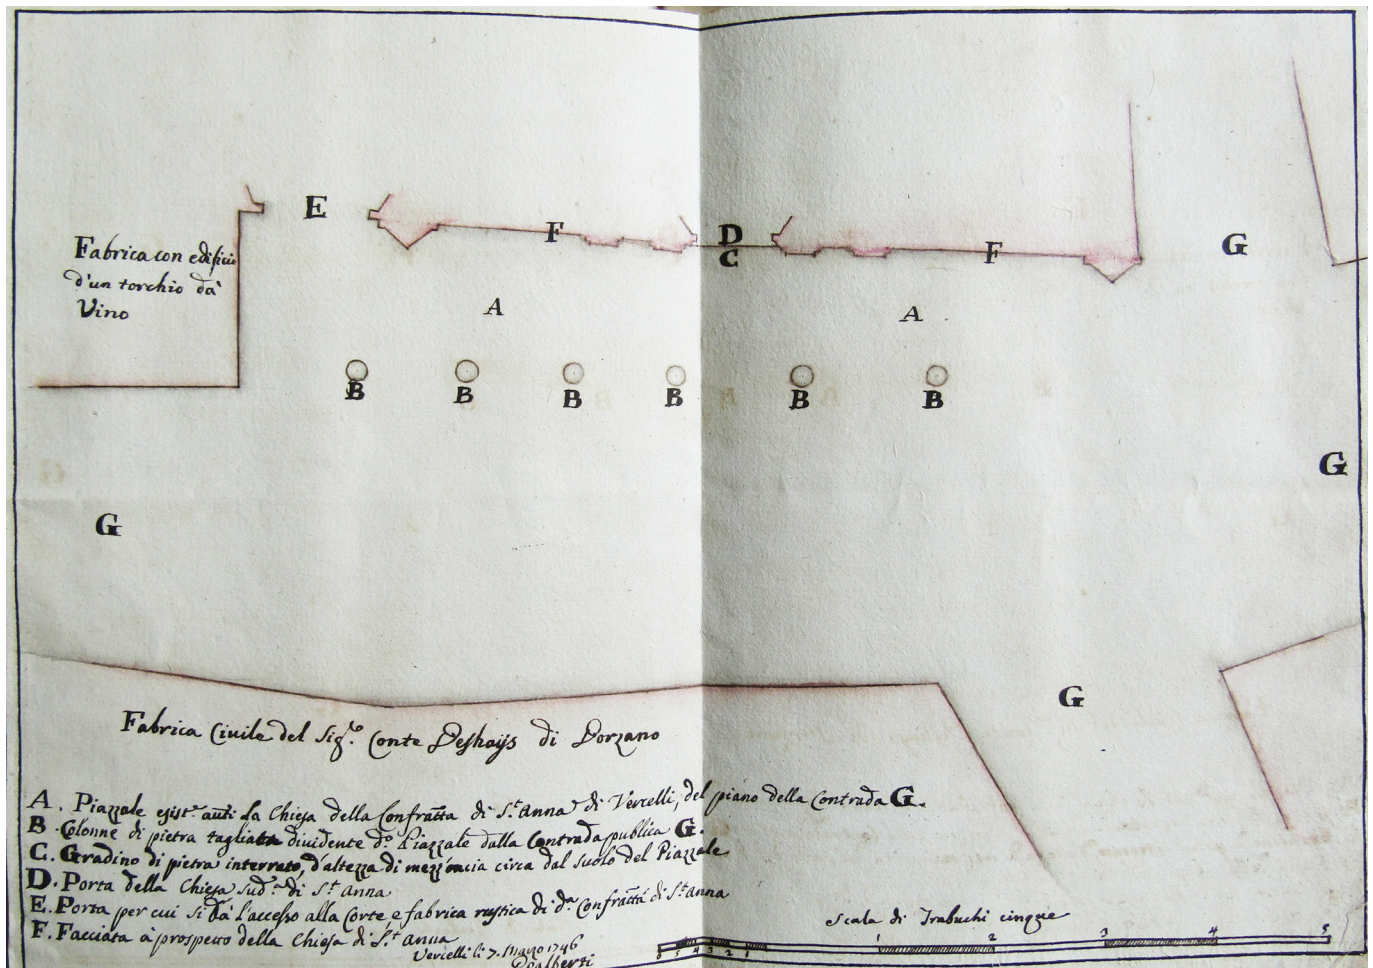 E
D
F
F
C
G
Fabrica con edificio
d'un torchio dà
Vino
A
A
B B B B B B
G
G
G
Fabrica Civile del Sig.re Conte Deshaijs di Dorzano
A. Piazzale esist.te anti la Chiesa della Confratta di S.t Anna di Vercelli, del piano della Contrada G.
B. Colonne di pietra tagliata dividente d.o Piazzale dalla Contrada publica G.
C. Gradino di pietra interrato, d'altezza di mezz'oncia circa dal suolo del Piazzale
D. Porta della Chiesa sud.a di S.t Anna
E. Porta per cui si dà l'accesso alla Corte, e fabrica rustica di d.a Confratta di S.t Anna
F. Facciata à prospetto della Chiesa di S.t Anna
Vercelli li 7. Marzo 1746
Dealberti
Scala di Trabuchi cinque
0 5 4 3 2 1 1 2 3 4 5